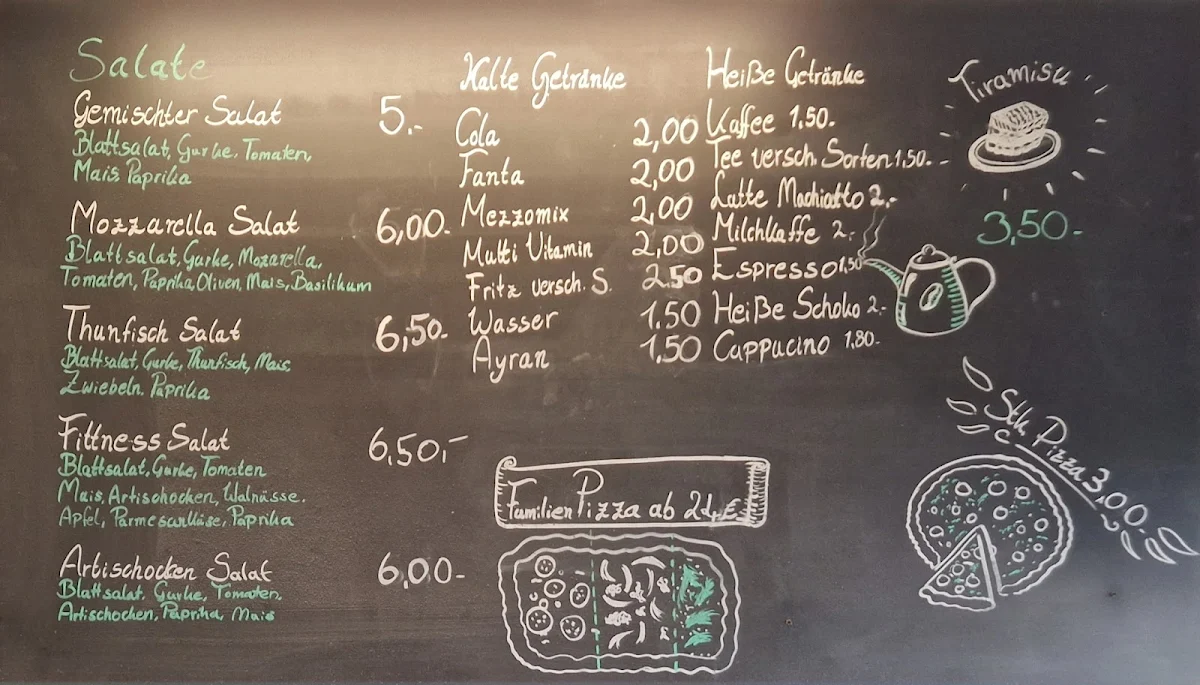 Salate
Gemischter Salat 5.-
Blattsalat, Gurke, Tomaten,
Mais, Paprika
Mozzarella Salat 6,00.
Blattsalat, Gurke, Mozarella,
Tomaten, Paprika, Oliven, Mais, Basilikum
Thunfisch Salat 6,50.
Blattsalat, Gurke, Thunfisch, Mais,
Zwiebeln, Paprika
Fittness Salat 6,50,-
Blattsalat, Gurke, Tomaten
Mais, Artischocken, Walnüsse.
Apfel, Parmesankäse, Paprika
Artischocken Salat 6,00-
Blattsalat, Gurke, Tomaten,
Artischocken, Paprika, Mais
Kalte Getränke
Cola 2,00
Fanta 2,00
Mezzomix 2,00
Multi Vitamin 2,00
Fritz versch. S. 2.50
Wasser 1.50
Ayran 1,50
Heiße Getränke
Kaffee 1,50.
Tee versch. Sorten 1,50.
Latte Machiatto 2,-
Milchkaffe 2.
Espresso 1,50
Heiße Schoko 2.-
Cappucino 1,80-
Tiramisu
3,50.-
Stk. Pizza 3,00.
Familien Pizza ab 21,-€